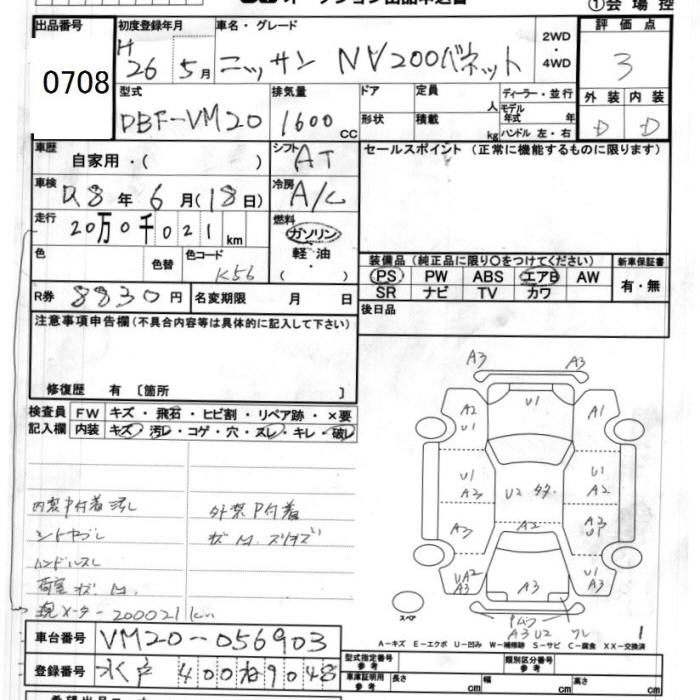 ①会場控
出品番号 0708
初度登録年月 H26年5月
車名・グレード ニッサン NV200バネット
2WD・4WD
評価点 3
型式 DBF-VM20
排気量 1600cc
ドア 形状
定員 人
積載 kg
ディーラー・並行
モデル年式 年
ハンドル 左・右
外装 D
内装 D
車歴 自家用・( )
シフト AT
セールスポイント (正常に機能するものに限ります)
車検 R8年6月(18日)
冷房 A/C
走行 20万0千021km
燃料 ガソリン 軽油 ( ・ )
色 色替 色コード K56
装備品 (純正品に限り○をつけてください)
PS PW ABS エアB AW
SR ナビ TV カワ
新車保証書 有・無
R券 8830円
名変期限 月 日
後日品
注意事項申告欄(不具合内容等は具体的に記入して下さい)
修復歴 有 〔箇所 〕
検査員記入欄
FW キズ・飛石・ヒビ割・リペア跡・×要
内装 キズ・汚レ・コゲ・穴・スレ・キレ・破レ
内装P付着汚レ 外装P付着
シートヤブレ
ハンドルスレ
荷室 キズ M.
現メーター200021km
A3 A3
A2 U1 U1 A1
U1 A3 U2 U1 A2
A3 A2 A3 U1
UA2 A3 A3 U1 A3
A3 U2
スペア
A-キズ E-エクボ U-凹み W-補修跡 S-サビ C-腐食 XX-交換済
車台番号 VM20-056903
登録番号 水戸 400
型式指定番号 参考
類別区分番号 参考
車庫証明用 参考 長さ cm 幅 cm 高さ cm